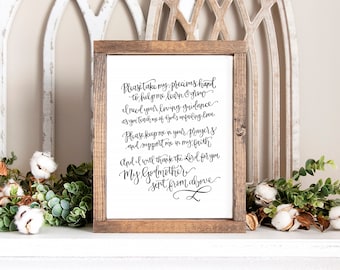 Please take my precious hand
to help me learn & grow
I need your loving guidance
as you teach me of God's unfailing love.
Please keep me in your prayers
and support me in my faith
And I will thank the Lord for you,
My Godmother
sent from above